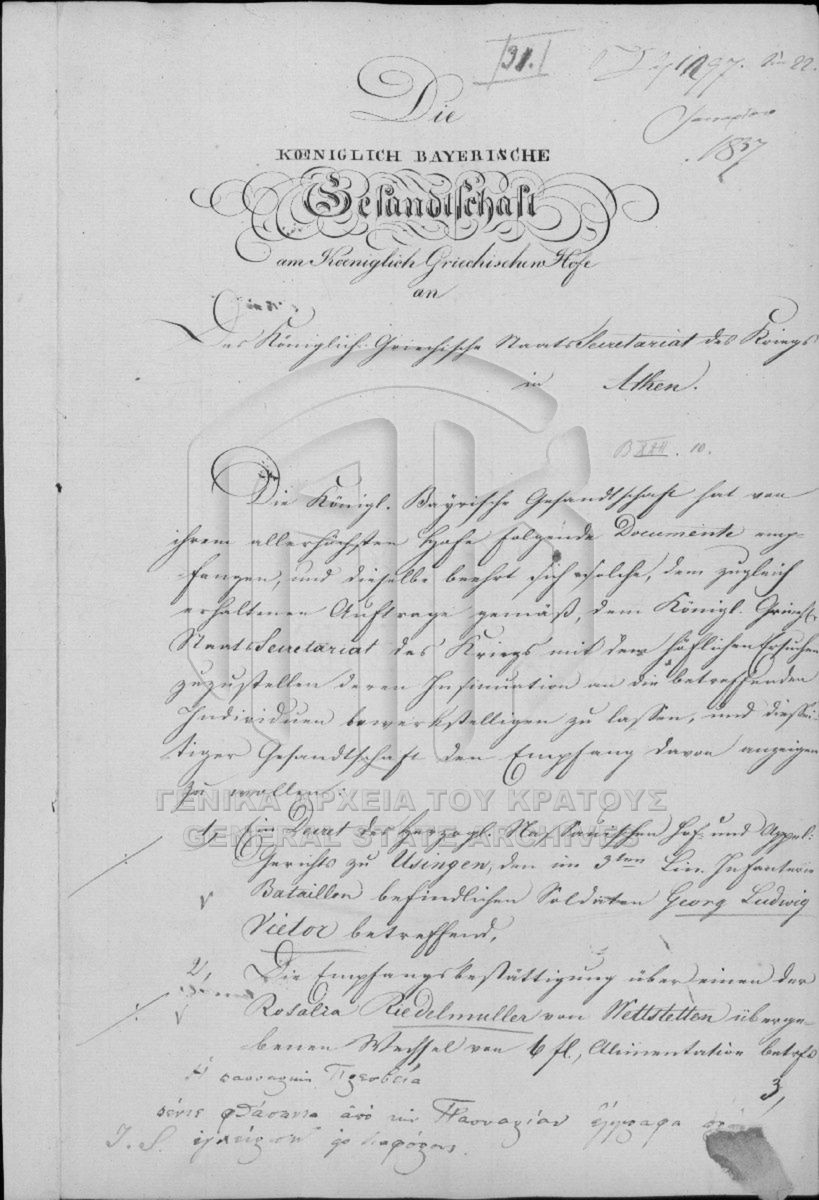 31.
1837
Die
KŒNIGLICH BAYERISCHE
Gesandtschaft
am Kœniglich Griechischen Hofe
an
Das Königlich Griechische Staats Secretariat des Kriegs
in Athen.
B XXII. 10.
Die Königl. Bayrische Gesandtschaft hat von
ihrem allerhöchsten Hofe folgende Documente emp-
fangen, und dieselbe beehrt sich solche, dem zugleich
erhaltenen Auftrage gemäß, dem Königl. Griech.
Staats Secretariat des Kriegs mit dem höflichen Ersuchen
zuzustellen deren Insinuation an die betreffenden
Individuen bewerkstelligen zu lassen, und diessei-
tiger Gesandtschaft den Empfang davon anzeigen
zu wollen:
ΓΕΝΙΚΑ ΑΡΧΕΙΑ ΤΟΥ ΚΡΑΤΟΥΣ
GENERAL STATE ARCHIVES
1, Ein Decret des Herzogl. Nassauischen Hof- und Appel.
Gerichts zu Usingen, den im 3ten Lin. Infanterie
Bataillon befindlichen Soldaten Georg Ludwig
Vietor betreffend,
2, Die Empfangsbestättigung über einen der
Rosalia Riedelmuller von Nettstetten überge-
benen Wechsel von 6 fl., Alimentation betrfd
3,
ἡ βαυαρικὴ Πρεσβεία
ἀπὸ τὴν Βαυαρίαν ἔγγραφα